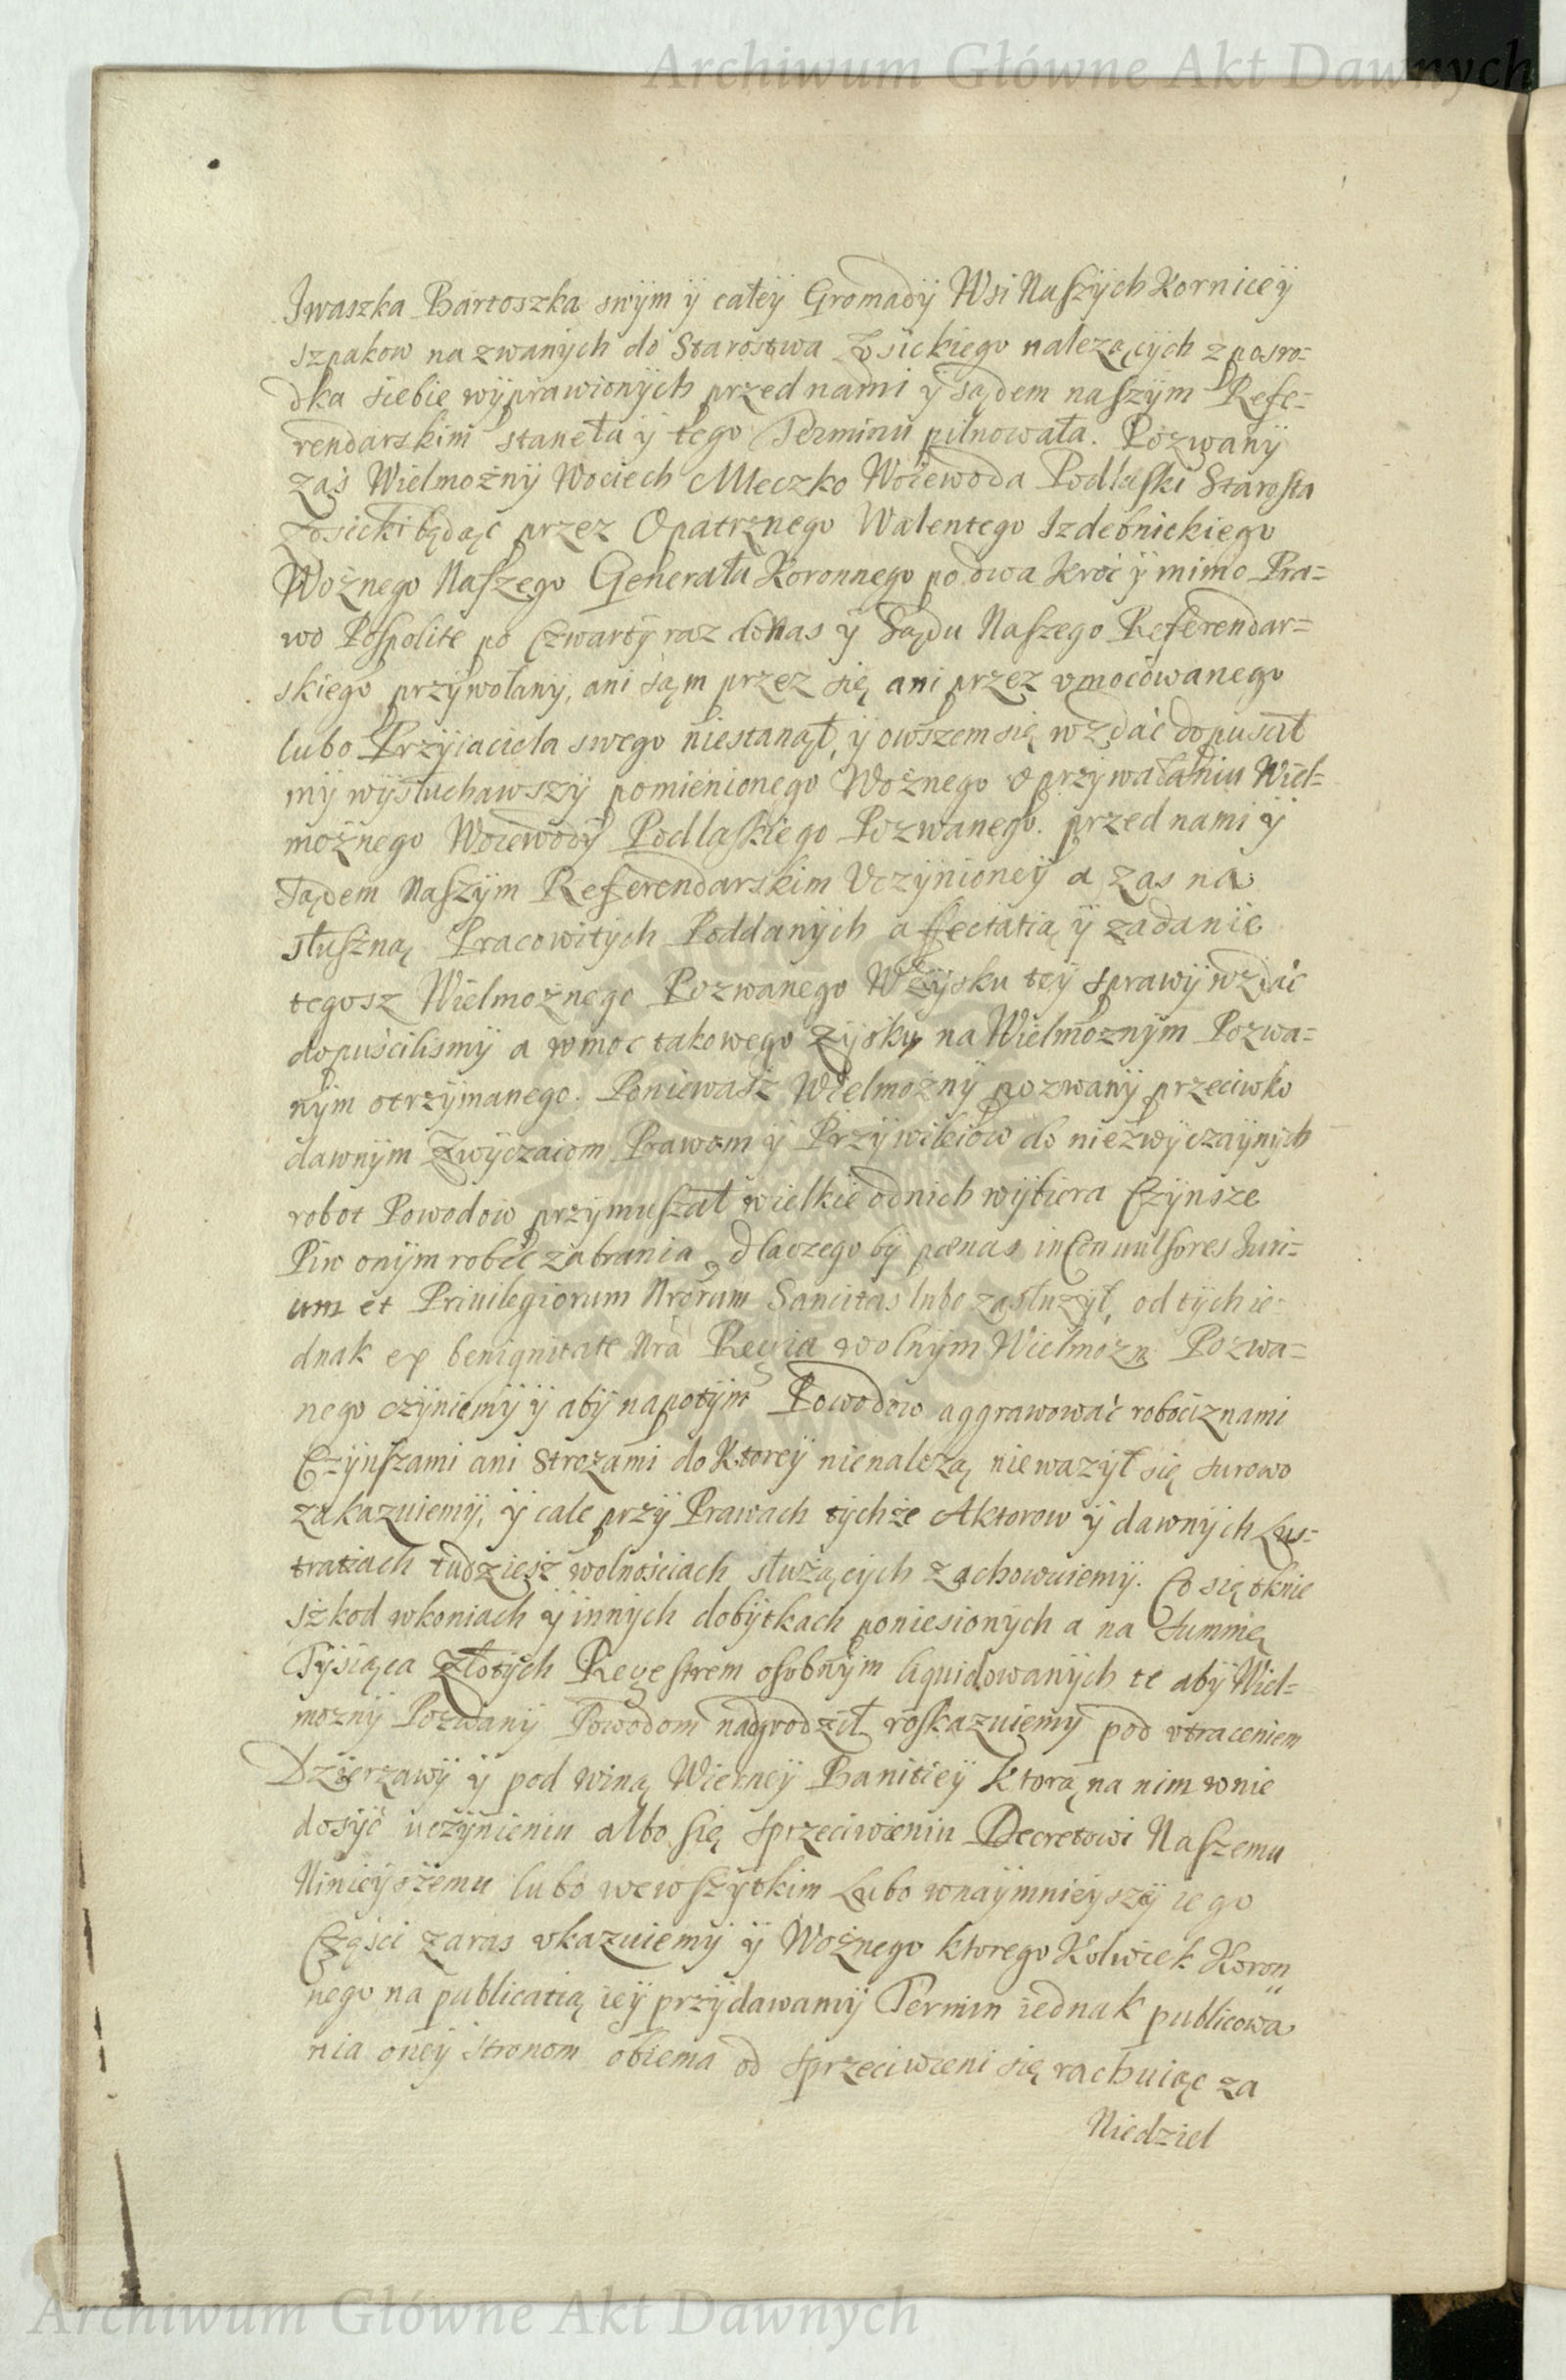 Archiwum Główne Akt Dawnych
Iwaszka Bartoszka swÿm ÿ całeÿ Gromadÿ Wsi Naszÿch Korniceÿ
szpakow nazwanÿch do Starostwa Łosickiego należącÿch z posro=
dka siebie wÿprawionÿch przed nami ÿ sądem naszÿm Refe=
rendarskim staneła ÿ tego Terminu pilnowała. Pozwanÿ
zaś Wielmożnÿ Wociech Mleczko Woiewoda Podlaski Starosta
Łosicki będąc przez Opatrznego Walentego Izdebnickiego
Woźnego Naszego Generała Koronnego po dwa kroć ÿ mimo Pra=
wo Pospolite po Czwartÿ raz do Nas ÿ Sądu Naszego Referendar=
skiego przÿwołanÿ, ani sąm przez się ani przez vmocowanego
lubo Przÿiaciela swego niestanął, ÿ owszem się wzdać dopuscił
mÿ wÿsłuchawszÿ pomienionego Woźnego o przÿwałaniu Wiel=
możnego Woiewodÿ Podlaskiego Pozwanego. przed nami ÿ
sądem Naszÿm Referendarskim Vczÿnioneÿ a zas na
słuszną Pracowitÿch Poddanÿch affectatią ÿ żądanie
tegosz Wielmożnego Pozwanego W Zÿsku teÿ sprawÿ wzdać
dopuścilismÿ a w moc takowego Zÿsku na Wielmożnÿm Pozwa=
nÿm otrzÿmanego. Poniewasz Wielmożnÿ pozwanÿ przeciwko
dawnÿm Zwÿczaiom Prawom ÿ Przÿwileiow do niezwÿczaÿnÿch
robot Powodow przÿmuszał wielkie od nich wÿbiera Czÿnsze
Piw onÿm robić zabrania, dlaczego bÿ pænas in Conuulsores Iuri=
um et Priuilegiorum Nrorum Sancitas lubo zasłużÿł, od tÿch ie=
dnak ex benignitate Nra Regia wolnÿm Wielmożn Pozwa=
nego czÿniemÿ ÿ abÿ napotÿm Powodow aggrawować robociznami
Czÿnszami ani Strożami do Ktoreÿ nienależą nieważÿł się surowo
zakazuiemÿ, ÿ cale przÿ Prawach tÿchże Aktorow ÿ dawnÿch Lus=
tratiach tudziesz wolnościach służącÿch zachowuiemÿ. Co się tknie
szkod w koniach ÿ innÿch dobÿtkach poniesionÿch a na summę
Tÿsiąca Złotÿch Regestrem osobnÿm liquidowanÿch te abÿ Wiel=
możnÿ Pozwanÿ Powodom nadgrodził roskazuiemÿ pod vtraceniem
Dzierzawÿ ÿ pod winą Wiecneÿ Banitieÿ Ktorą na nim w nie
dosÿć uczÿnieniu albo się sprzeciwieniu Decretowi Naszemu
Ninieÿszemu lubo we wszÿtkim Lubo w naÿmnieÿszeÿ iego
Częśći zaras vkazuiemÿ ÿ Woźnego ktorego Kolwiek Koron
nego na publicatią ieÿ przÿdawamÿ Termin iednak publicowa
nia oneÿ stronom obiema od sprzeciwieni się rachuiąc za
Niedziel
Archiwum Główne Akt Dawnych